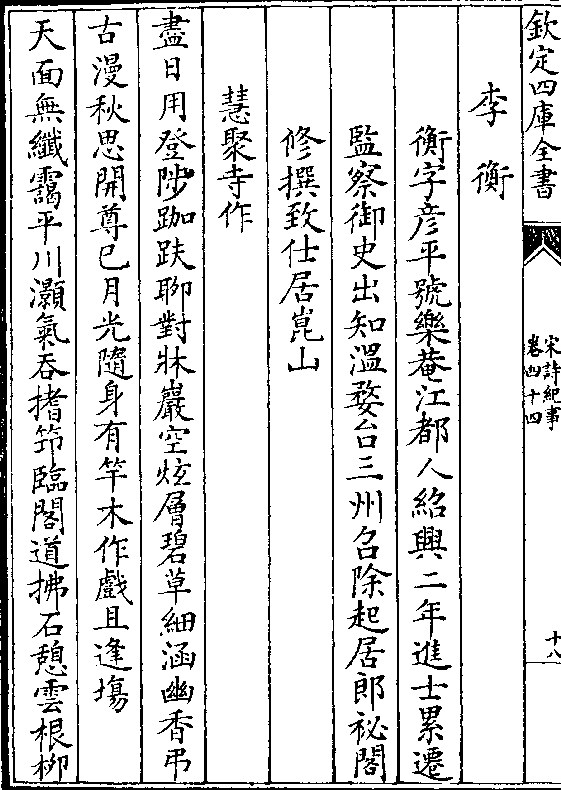 欽定四庫全書
宋詩紀事
卷四十四
十八
李衡
衡字彦平號樂菴江都人紹興二年進士累遷
監察御史出知溫婺台三州召除起居郎祕閣
修撰致仕居崑山
慧聚寺作
盡日用登陟跏趺聊對牀巖空炫層碧草細涵幽香弔
古漫秋思開尊已月光隨身有竿木作戲且逢塲
天面無纖靄平川灝氣吞搘笻臨閣道拂石憩雲根柳